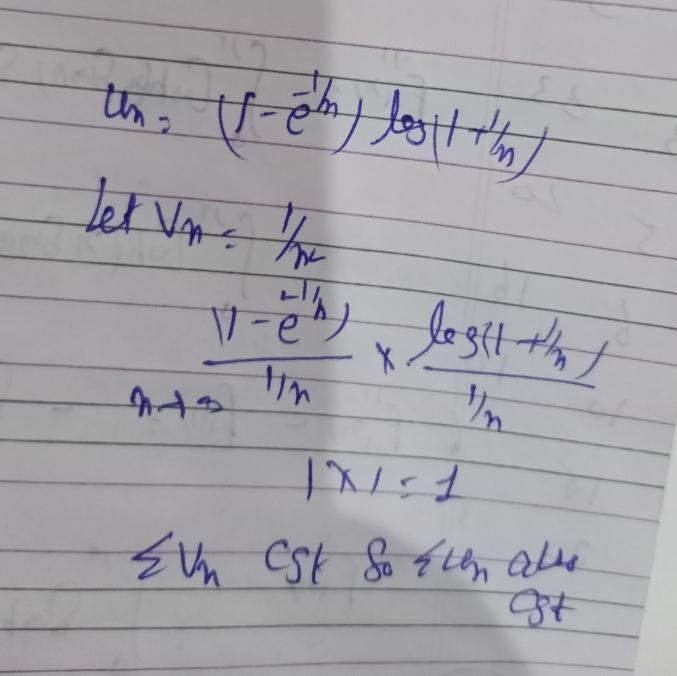 Un = (1 - e^-1/n) log(1 + 1/n)
Let Vn = 1/n²
(1 - e^-1/n) / 1/n × log(1 + 1/n) / 1/n
n→∞
1 × 1 = 1
ΣVn Cgt So ΣUn also
Cgt